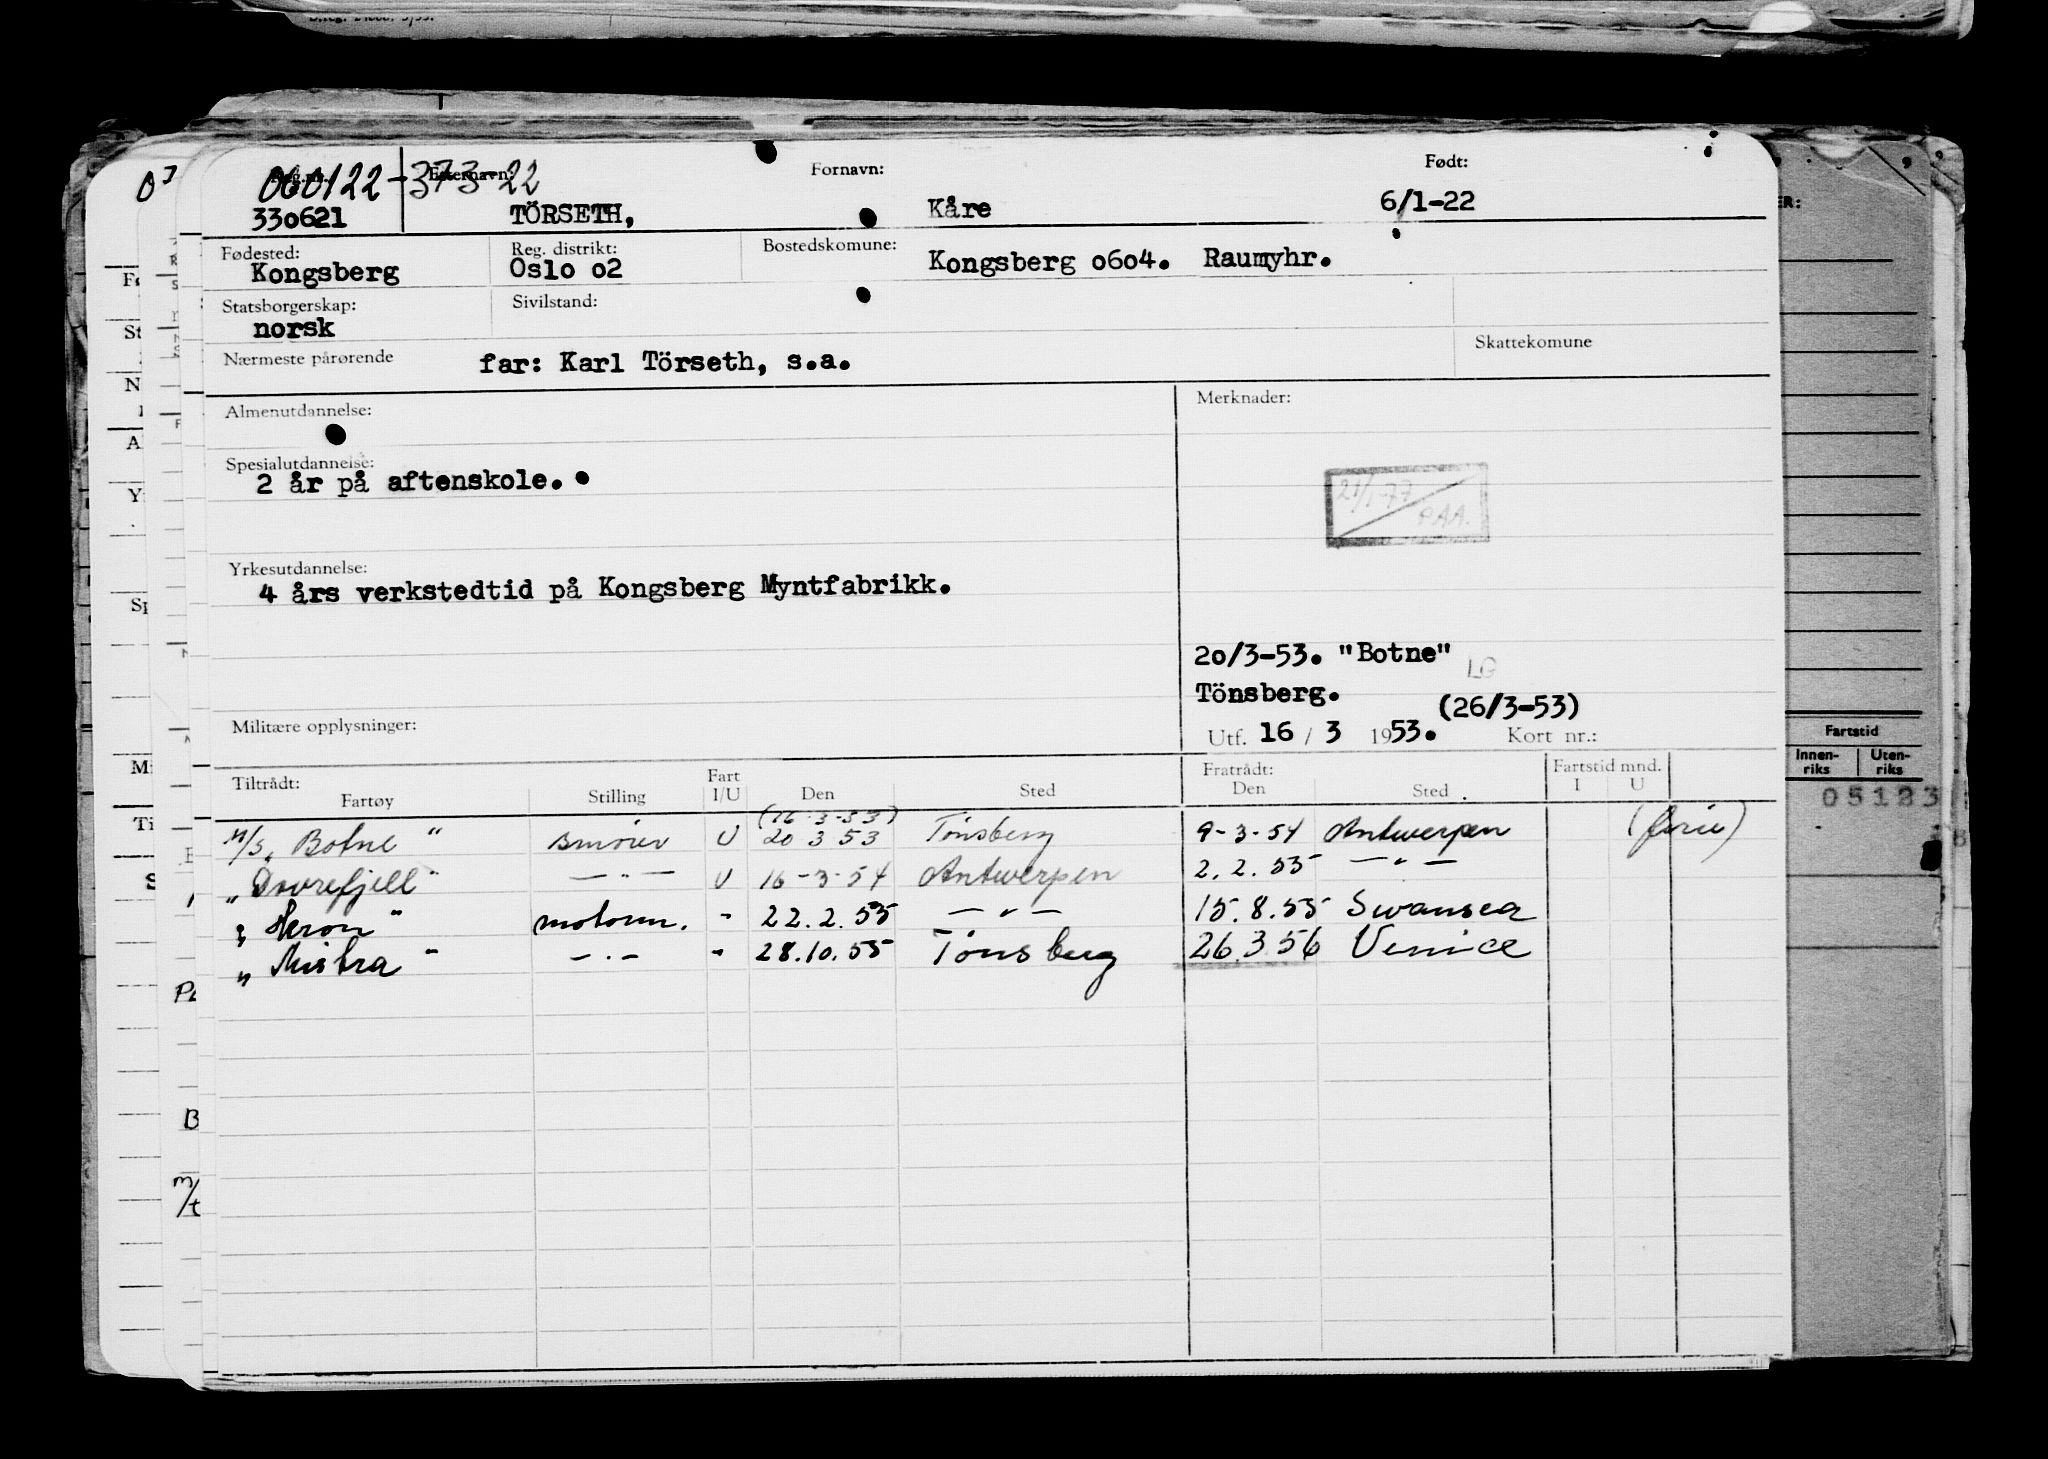 060122-373-22
Fornavn:
Født:
330621 TÖRSETH, Kåre 6/1-22
Fødested: Reg. distrikt: Bostedskomune:
Kongsberg Oslo 02 Kongsberg 0604. Raumyhr.
Statsborgerskap: Sivilstand:
norsk
Nærmeste pårørende far: Karl Törseth, s.a. Skattekomune
Almenutdannelse: Merknader:
Spesialutdannelse:
2 år på aftenskole.
21/1-77
P.A.A.
Yrkesutdannelse:
4 års verkstedtid på Kongsberg Myntfabrikk.
20/3-53. "Botne" LG
Tönsberg.
(26/3-53)
Militære opplysninger: Utf. 16 / 3 1953. Kort nr.:
Tiltrådt: Fart Fratrådt: Fartstid mnd.
Fartøy Stilling I/U Den Sted Den Sted I U
(16-3-53)
M/S „Botne" smører U 20 3 53 Tønsberg 9-3-54 Antwerpen
„Dovrefjell" —"— U 16-3-54 Antwerpen 2.2.55 —"—
„Heron" motorm. " 22.2.55 —"— 15.8.55 Swansea
„Mistra" —"— " 28.10.55 Tønsberg 26.3 56 Venice
Fartstid
Innen-riks Uten-riks
05123